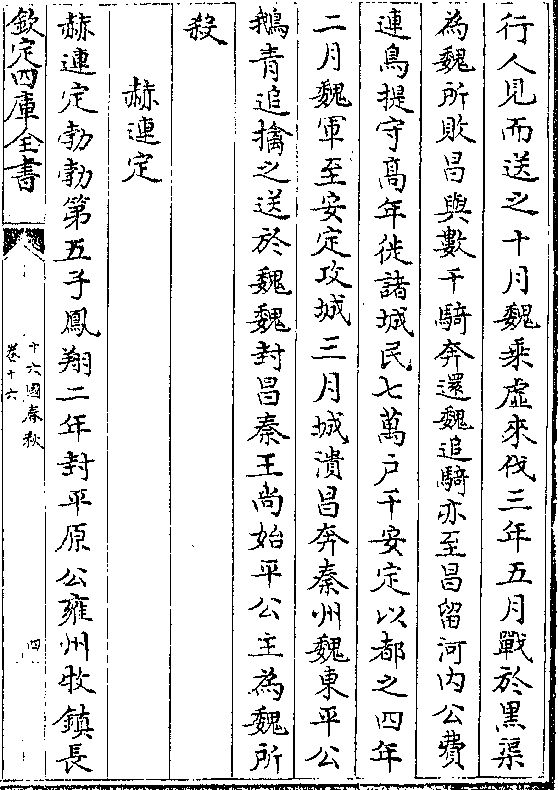 行人見而送之十月魏乘虛來伐三年五月戰於黑渠
為魏所敗昌與數千騎奔還魏追騎亦至昌留河内公費
連烏提守髙年徙諸城民七萬户于安定以都之四年
二月魏軍至安定攻城三月城潰昌奔秦州魏東平公
鵝青追擒之送於魏魏封昌秦王尚始平公主為魏所
殺
赫連定
赫連定勃勃第五子鳳翔二年封平原公雍州牧鎮長
欽定四庫全書
十六國春秋
卷十六
四